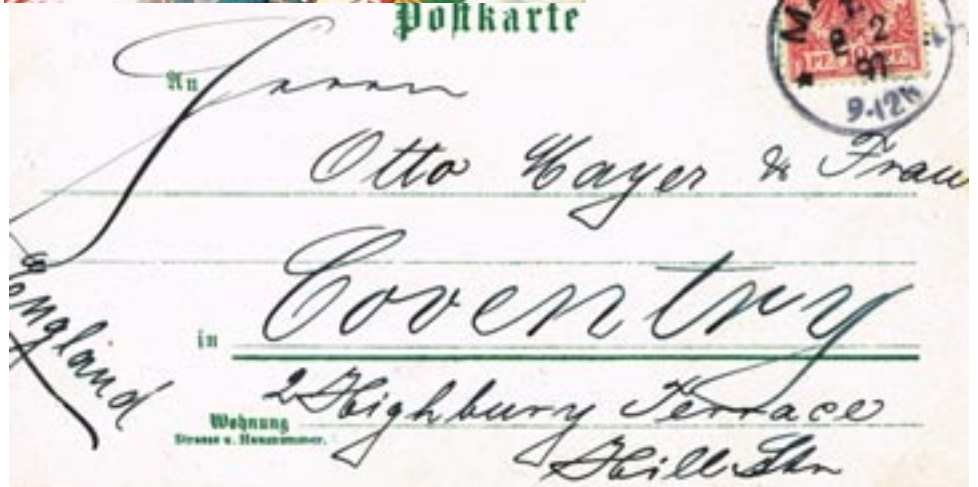 Postkarte
PF. 10 PF.
2
97
9-12N
An Herrn
Otto Mayer & Frau
in Coventry
England
Wohnung
Strasse u. Hausnummer.
2 Highbury Terrace
Hill